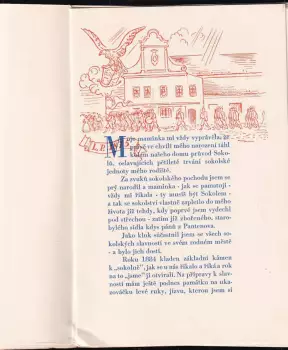 Moje maminka mi vždy vyprávěla, že
právě ve chvíli mého narození táhl
kolem našeho domu průvod Soko-
lů, oslavujících pětileté trvání sokolské
jednoty mého rodiště.
Za zvuků sokolského pochodu jsem se
prý narodil a maminka - jak se pamatuji -
vždy mi říkala - ty musíš být Sokolem -
a tak se sokolství vlastně zaplulo do mého
života již tehdy, kdy poprvé jsem vydechl
pod střechou - zatím již zbořeného, staro-
bylého sídla kdys pánů z Pantenova.
Jako kluk súčastnil jsem se všech so-
kolských slavností ve svém rodném městě
- a bylo jich dosti.
Roku 1884 kladen základní kámen
k „sokolně“, jak se u nás říkalo a říká a rok
na to „jsme“ ji otvírali. Na přípravy k slav-
nosti mám ještě podnes památku na uka-
zováčku levé ruky, jizvu, kterou jsem si